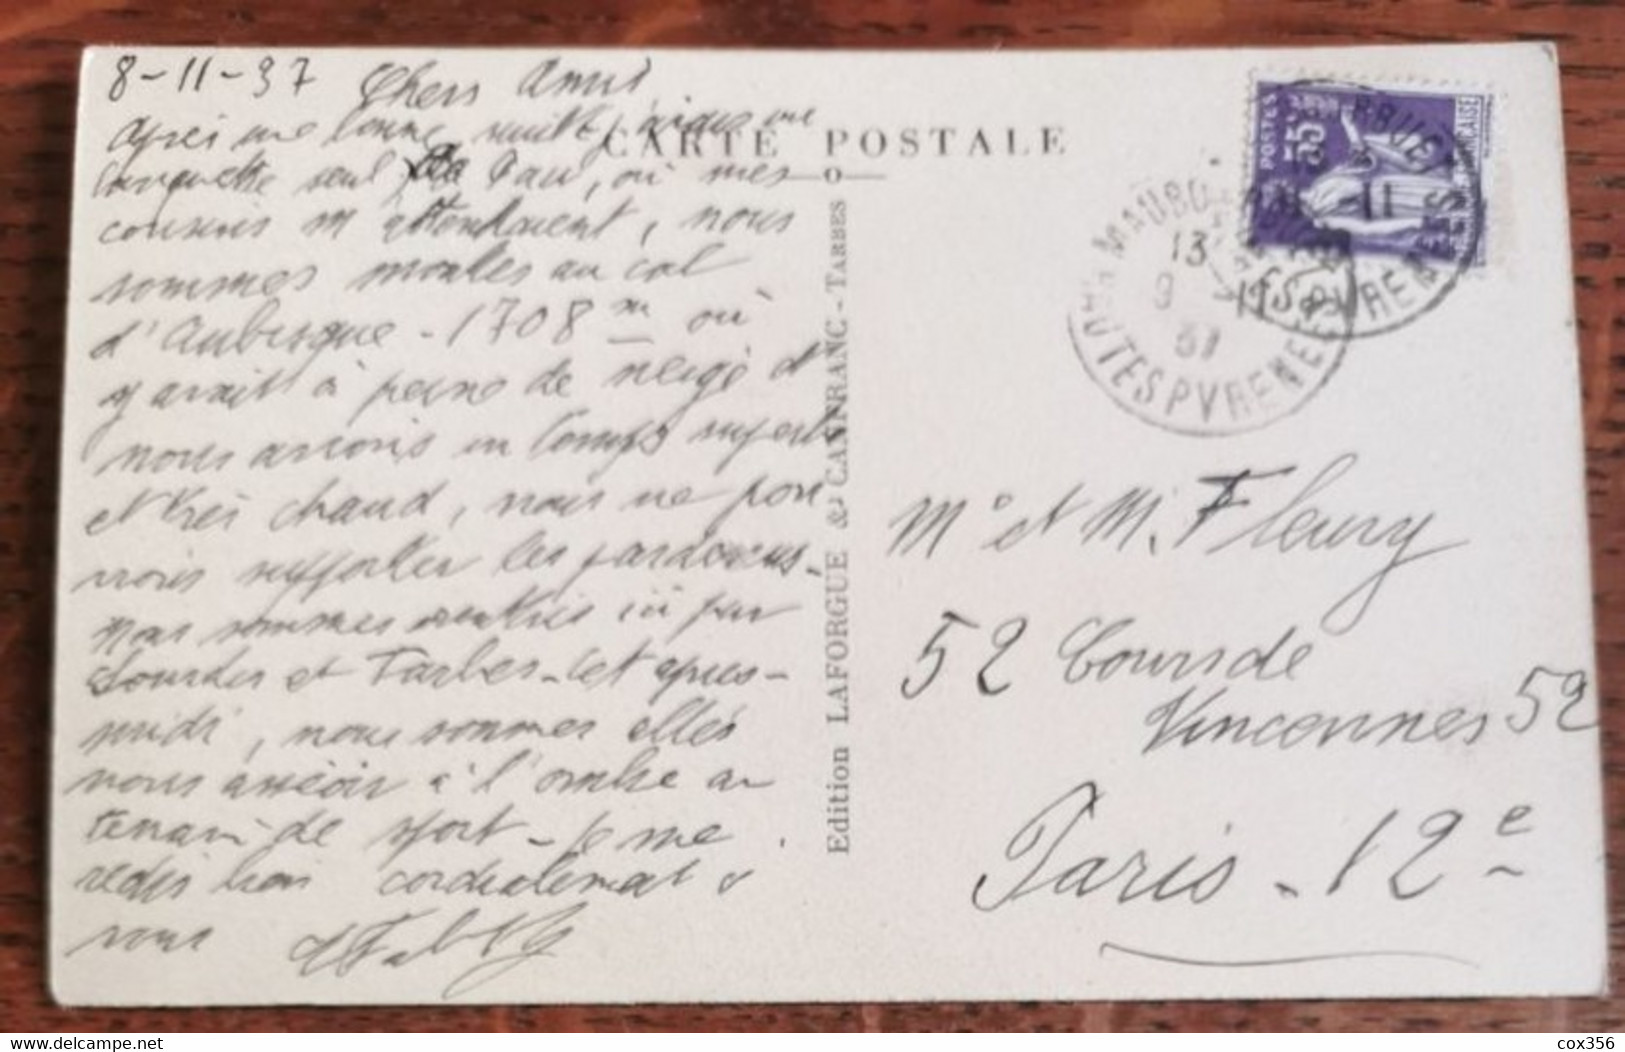 8-11-37 Chers Amis
Après une bonne nuit, jusque une
banquette seul Pau, où mes
cousins m'attendaient, nous
sommes montés au col
d'Aubisque - 1708 m où
y avait à peine de neige et
nous avions un temps superbe
et très chaud, nous ne pou
vions supporter les pardessus.
Nous sommes rentrés ici par
Lourdes et Tarbes - Cet après-
midi, nous sommes allés
nous asseoir à l'ombre au
terrain de sport - Je me
redis bien cordialement à
vous
CARTE POSTALE
Edition LAFORGUE & CANFRANC - TARBES
POSTES
55
MAUBOURGUET
13
9 -11
37
HTES PYRENEES
Mr et M. Fleury
52 Cours de
Vincennes 52
Paris - 12e
cox356